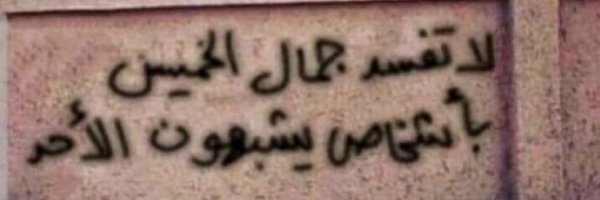 لا تفسد جمال الخميس
بأشخاص يشبهون الأحد